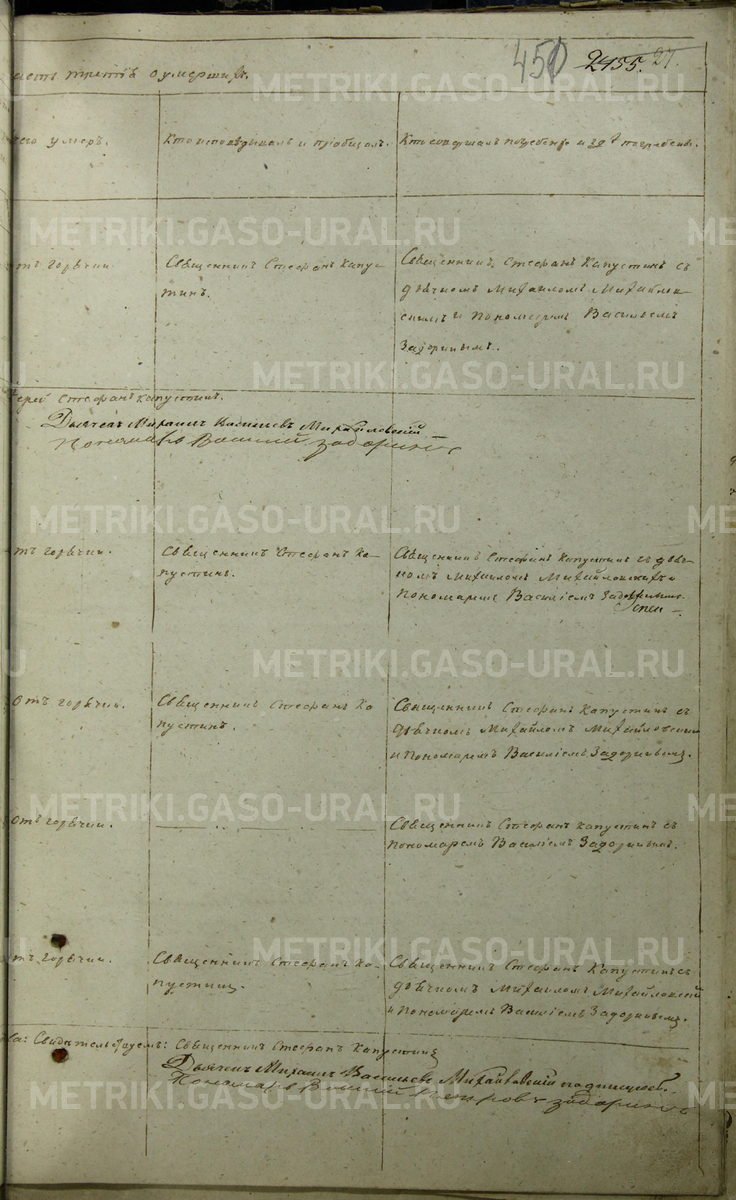 450 2455. 27.
асть третія о умершихъ.
его умеръ.
Кто исповѣдывалъ и пріобщалъ.
Кто совершалъ погребеніе и гдѣ погребены.
отъ горячки
Священникъ Стефанъ Капус-
тинъ.
Священникъ Стефанъ Капустинъ съ
дьячкомъ Михаиломъ Михайлов-
скимъ и Пономаремъ Васильемъ
Задоринымъ.
ерей Стефанъ Капустинъ.
Дьячекъ Михаилъ Михайловскій
Пономарь Василий Задоринъ
отъ горячки.
Священникъ Стефанъ Ка-
пустинъ.
Священникъ Стефанъ Капустинъ съ дьяч-
комъ Михаиломъ Михайловскимъ и
Пономаремъ Василіемъ
отъ горячки.
Священникъ Стефанъ Ка
пустинъ.
Священникъ Стефанъ Капустинъ съ
дьячкомъ Михаиломъ Михайловскимъ
и Пономаремъ Василіемъ Задоринымъ.
отъ горячки.
Священникъ Стефанъ Капустинъ съ
Пономаремъ Василіемъ Задоринымъ.
отъ горячки.
Священникъ Стефанъ Ка-
пустинъ.
Священникъ Стефанъ Капустинъ съ
дьячкомъ Михаиломъ Михайловскимъ
и Пономаремъ Василіемъ Задоринымъ.
Свидѣтельствуемъ: Священникъ Стефанъ Капустинъ
Дьячекъ Михаилъ Васильевъ Михайловскій
Пономарь Василий Петровъ Задоринъ
METRIKI.GASO-URAL.RU